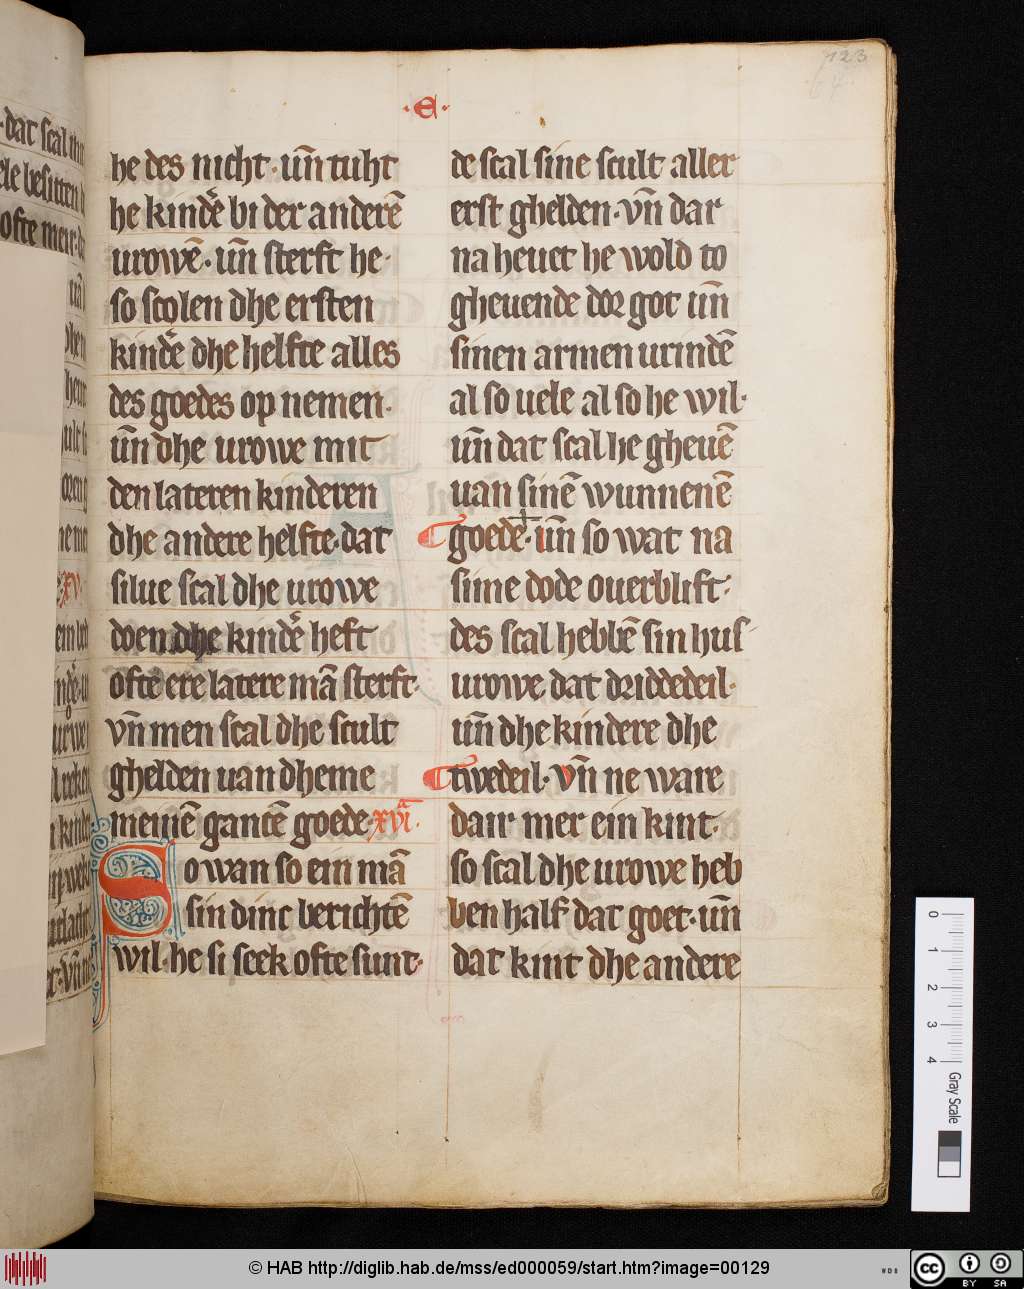 123
·E·
he des nicht · un̄ tuht
he kindẽ bi der anderẽ
urowẽ · un̄ sterft he·
so scolen dhe ersten
kindẽ dhe helfte alles
des goedes op nemen·
un̄ dhe urowe mit
den lateren kinderen
dhe andere helfte· dat
silue scal dhe urowe
doen dhe kindẽ heft
ofte ere latere mā sterft·
vn̄ men scal dhe scult
ghelden uan dheme
meinẽ gantẽ goede· xvi
So wan so ein mā
sin dinc berichtẽ
wil· he si seek ofte sunt·
de scal sine scult aller
erst ghelden· vn̄ dar
na heuet he wold to
gheuende dor got un̄
sinen armen urindẽ
al so uele al so he wil·
un̄ dat scal he gheuẽ
uan sinẽ wunnenẽ
goede· un̄ so wat na
sime dode ouerblift·
des scal hebbẽ sin hus
urowe dat driddedeil·
un̄ dhe kindere dhe
twedeil· vn̄ ne ware
dair mer ein kint·
so scal dhe urowe heb
ben half dat goet· un̄
dat kint dhe andere
0 1 2 3 4 Gray Scale
© HAB http://diglib.hab.de/mss/ed000059/start.htm?image=00129
cc BY SA